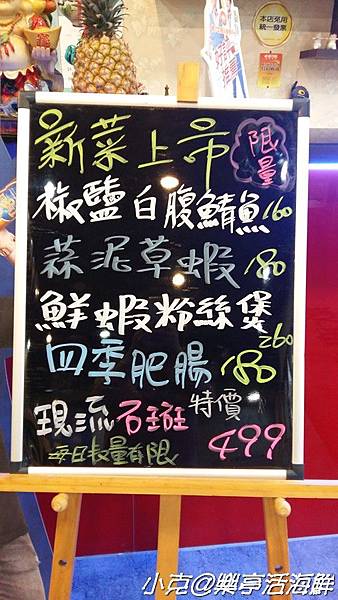 本店免用
統一發票
新菜上市
限量
椒鹽白腹鯖魚160
蒜泥草蝦180
鮮蝦粉絲煲
260
四季肥腸180
現流石斑特價
499
每日數量有限
小克@樂享活海鮮